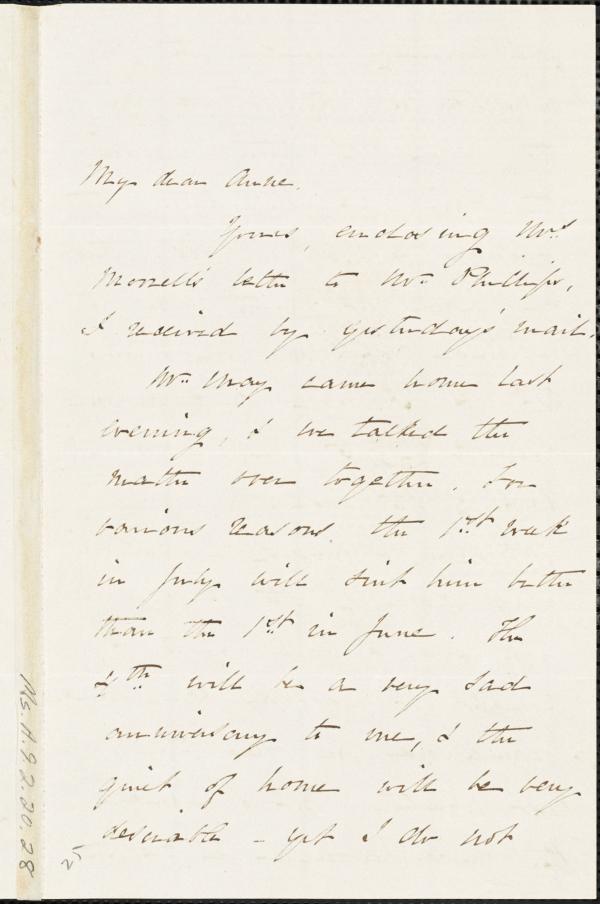 My dear Anne.
Yours, enclosing Mrs.
Morrell's letter to Mr. Phillips,
I received by yesterday's mail.
Mr. May came home last
evening, & we talked the
matter over together. For
various reasons, the 1st. week
in July will suit him better
than the 1st. in June. The
4th. will be a very sad
anniversary to me, & the
quiet of home will be very
desirable - yet I do not
25
Ms. A.9.2.30.28